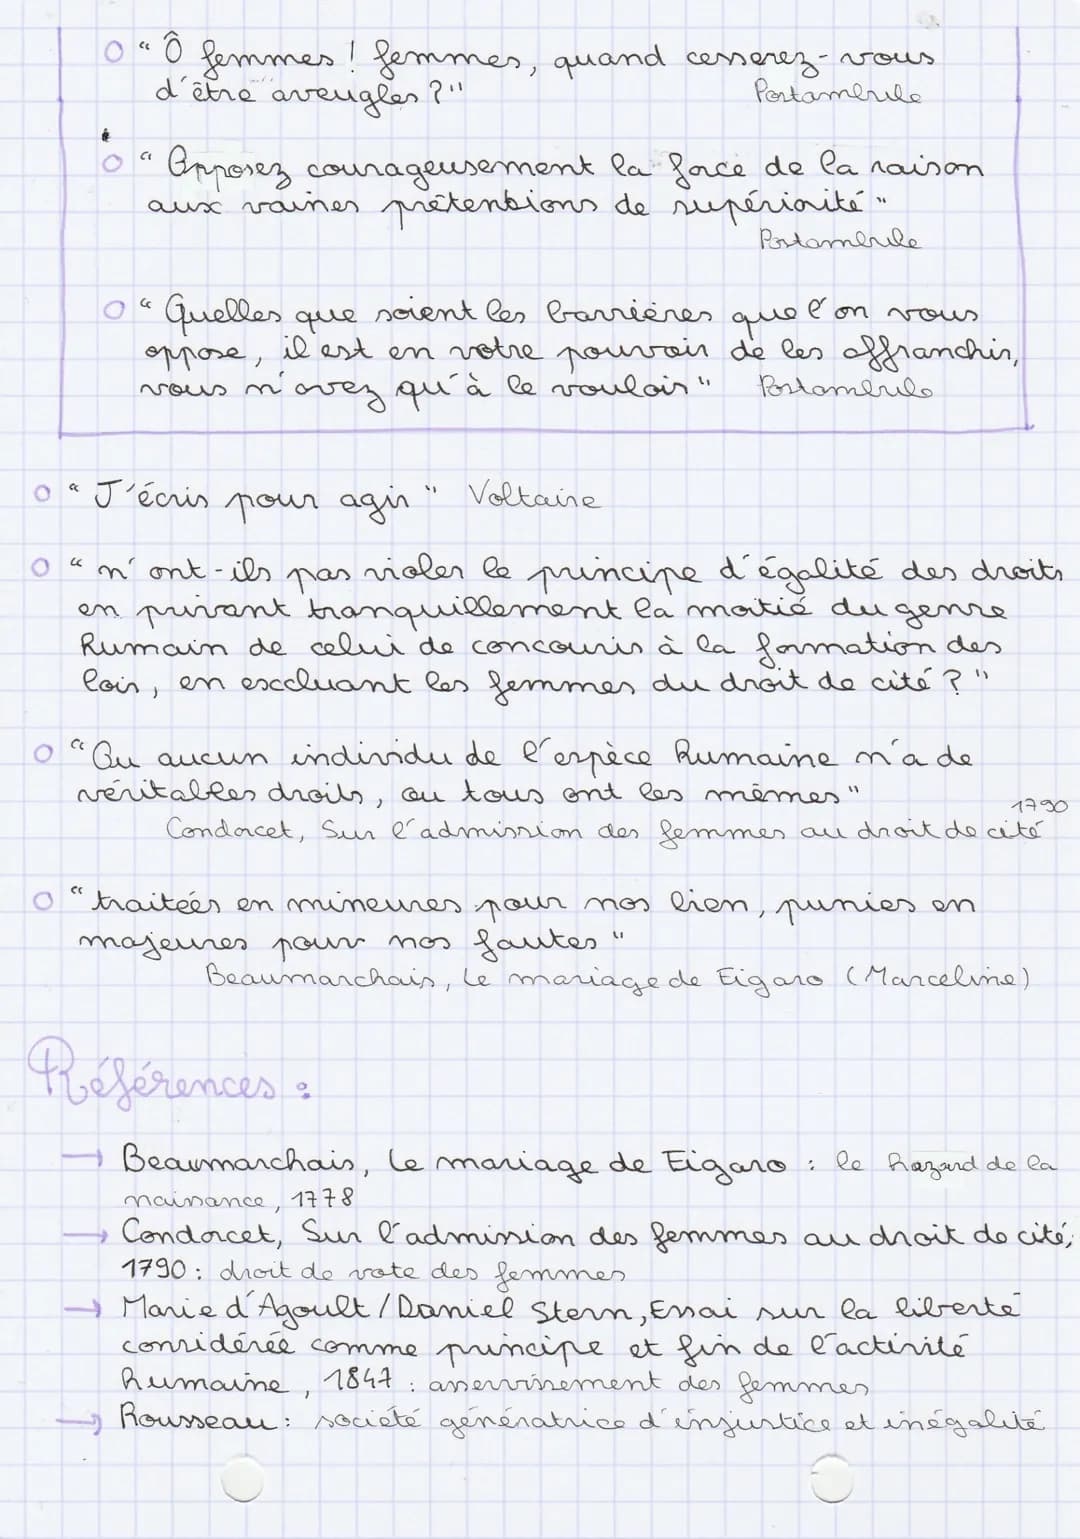 "Ô femmes ! femmes, quand cesserez-vous
d'être aveugles ?" Postambule
"Opposez courageusement la force de la raison
aux vaines prétentions de supériorité"
Postambule
"Quelles que soient les barrières que l'on vous
oppose, il est en votre pouvoir de les affranchir,
vous n'avez qu'à le vouloir" Postambule
"J'écris pour agir" Voltaire
"n'ont-ils pas violer le principe d'égalité des droits
en privant tranquillement la moitié du genre
humain de celui de concourir à la formation des
lois, en excluant les femmes du droit de cité ?"
"Ou aucun individu de l'espèce humaine n'a de
véritables droits, ou tous ont les mêmes"
1790
Condorcet, Sur l'admission des femmes au droit de cité
"traitées en mineures pour nos bien, punies en
majeures pour nos fautes"
Beaumarchais, Le mariage de Figaro (Marceline)
Références :
→ Beaumarchais, Le mariage de Figaro : le hazard de la
naissance, 1778
→ Condorcet, Sur l'admission des femmes au droit de cité,
1790 : droit de vote des femmes
→ Marie d'Agoult / Daniel Stern, Essai sur la liberté
considérée comme principe et fin de l'activité
humaine, 1847 : asservissement des femmes
→ Rousseau : société génératrice d'injustice et inégalité